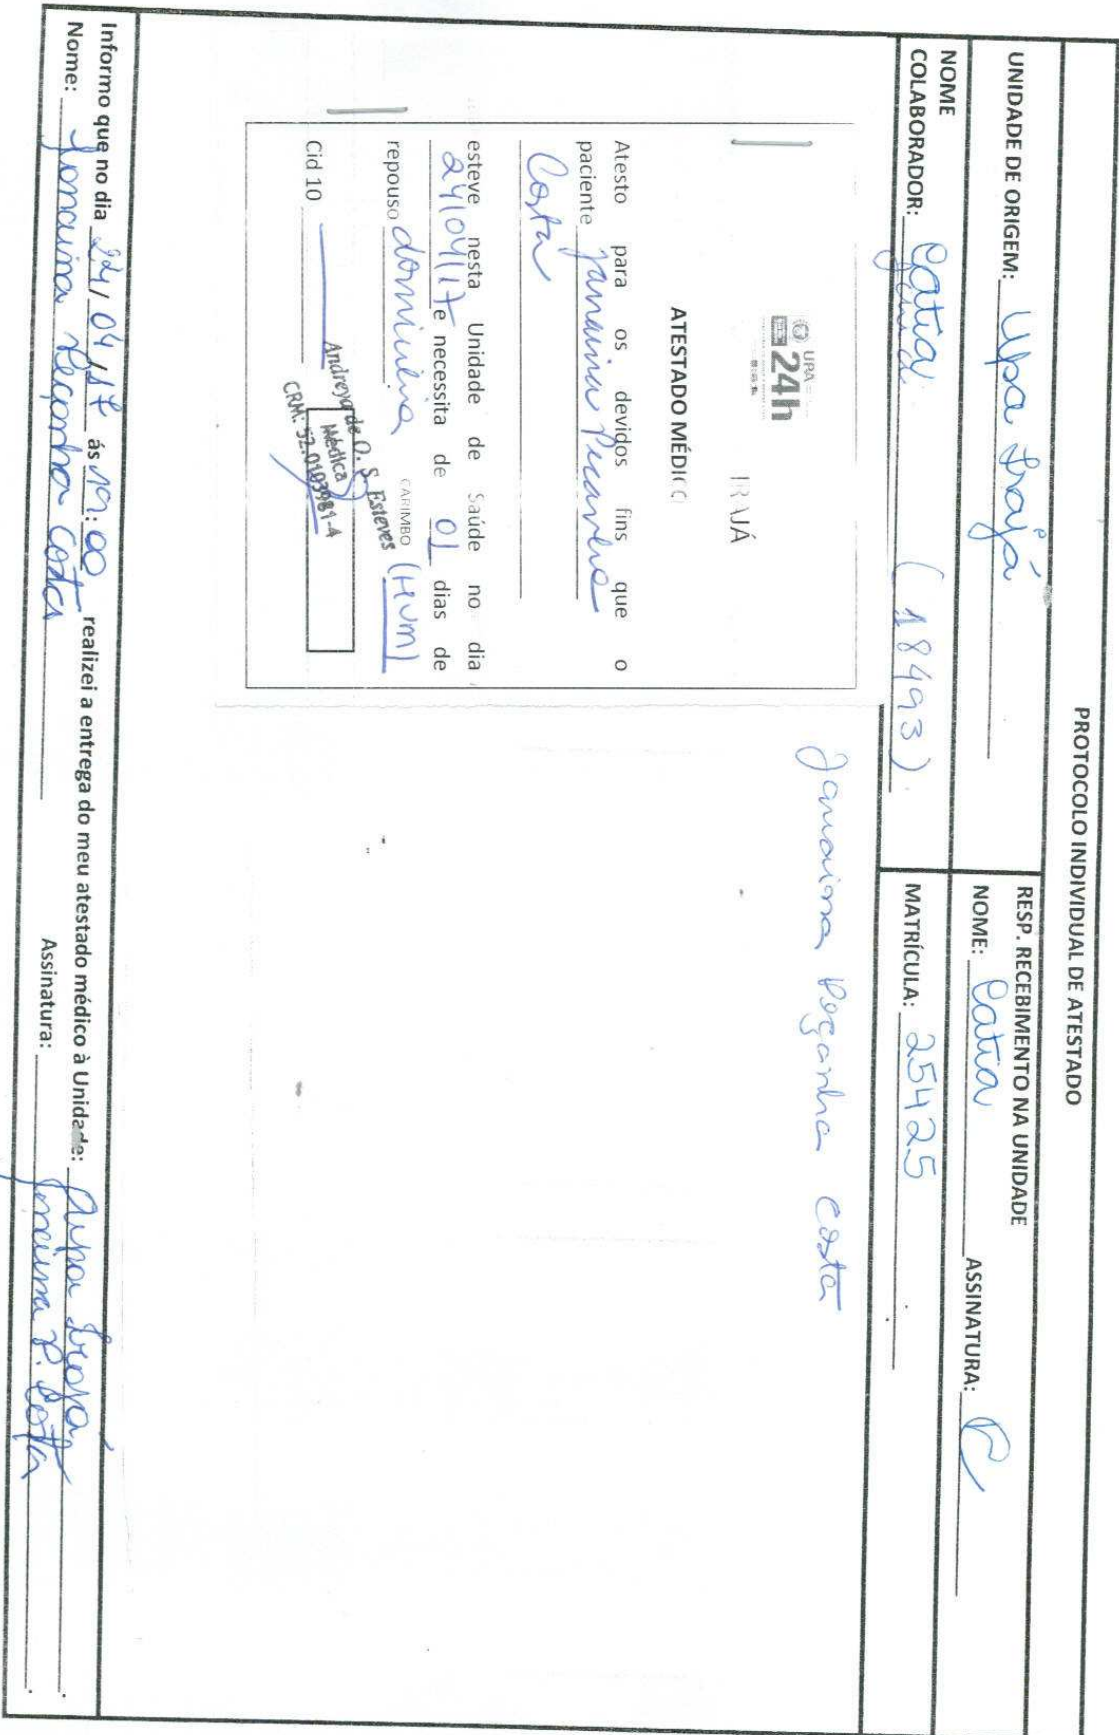 PROTOCOLO INDIVIDUAL DE ATESTADO
UNIDADE DE ORIGEM: Upa Irajá
RESP. RECEBIMENTO NA UNIDADE
NOME: Catia ASSINATURA:
NOME
COLABORADOR: Catia (18493)
MATRÍCULA: 25425
Janaina Peçanha Costa
UPA
24h
IRAJÁ
ATESTADO MÉDICO
Atesto para os devidos fins que o
paciente Janaina Pecanha
Costa
esteve nesta Unidade de Saúde no dia
24/04/17 e necessita de 01 dias de
repouso domiciliar (HUM)
CARIMBO
Cid 10
Andreya de O. S. Esteves
Médica
CRM: 52.0103981-4
Informo que no dia 24/04/17 ás 19:00 realizei a entrega do meu atestado médico à Unidade: Upa Irajá
Nome: Janaina Peçanha Costa Assinatura: Janaina P. Costa